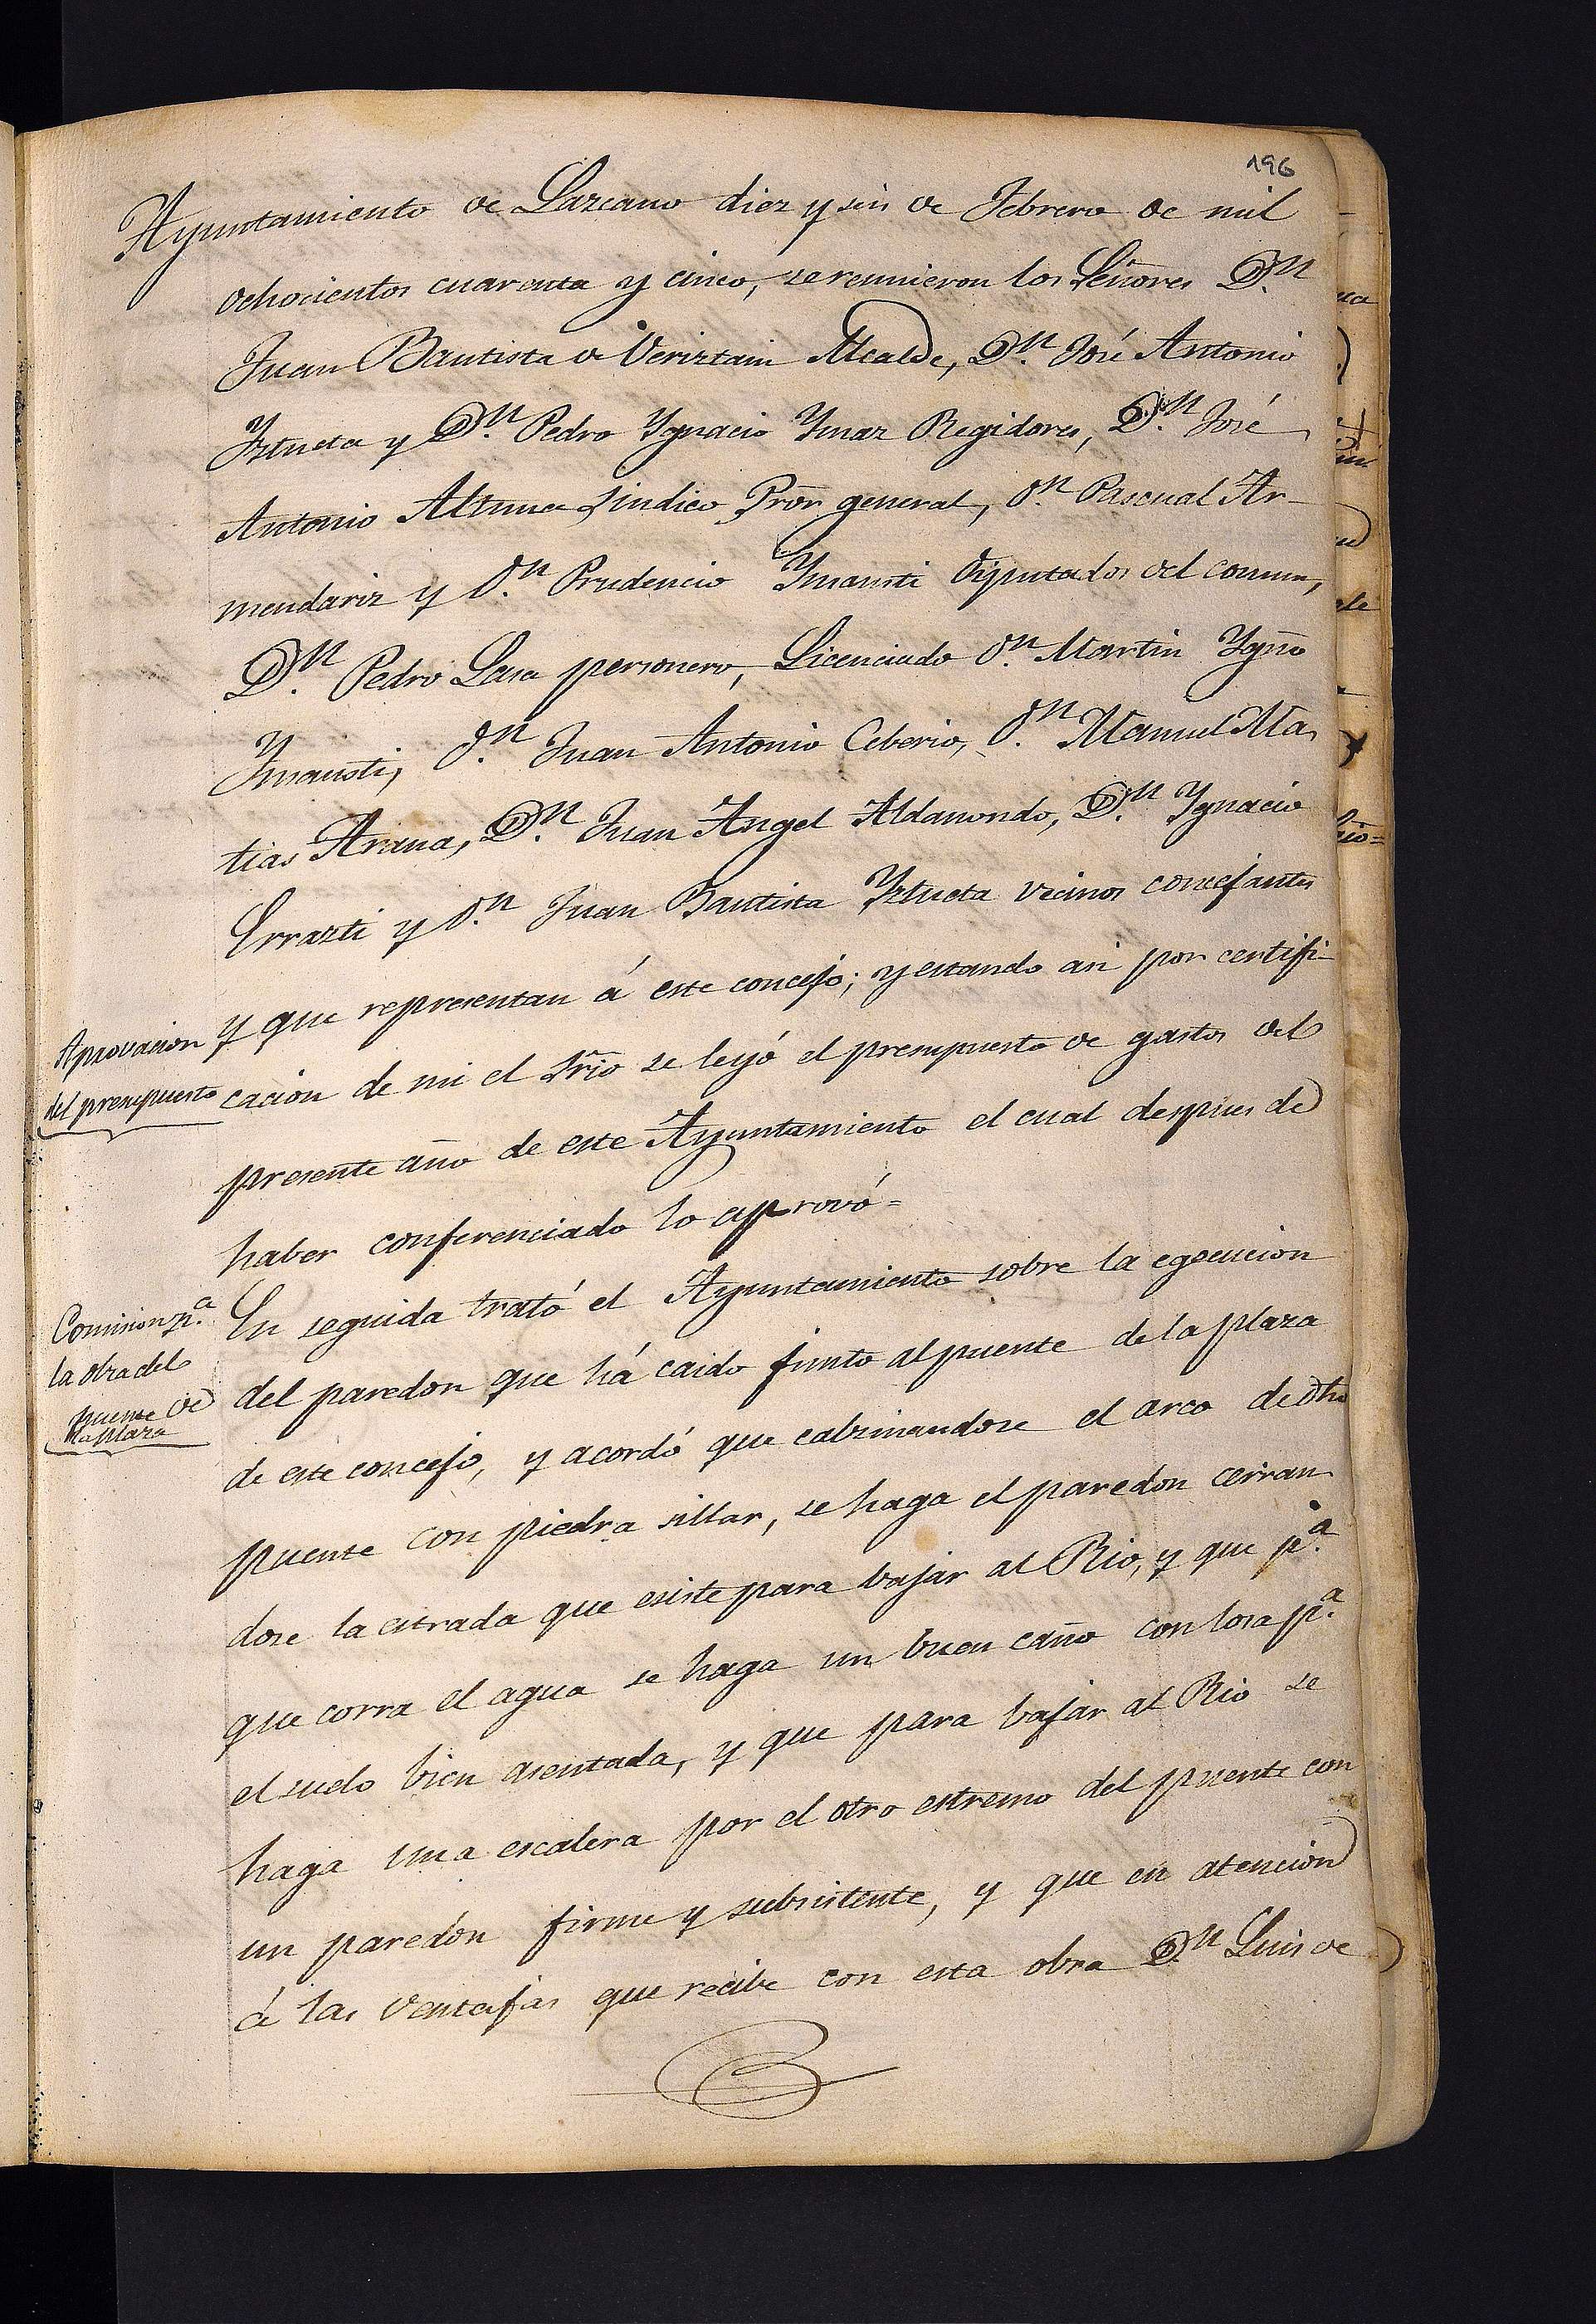 196
Ayuntamiento de Lazcano diez y seis de Febrero de mil
ochocientos cuarenta y cinco, se reunieron los Señores D.n
Juan Bautista de Veriztain Alcalde, D.n José Antonio
Yztueta y D.n Pedro Ygnacio Ymaz Regidores, D.n José
Antonio Altuna Sindico Pror general, D.n Pascual Ar-
mendariz y D.n Prudencio Ymausti Diputados del comun,
D.n Pedro Lasa personero, Licenciado D.n Martin Ygño
Ymausti, D.n Juan Antonio Ceberio, D.n Manuel Ma
tias Arana, D.n Juan Angel Aldanondo, D.n Ygnacio
Errazti y D.n Juan Bautista Yztueta vecinos concejantes
y que representan á este concejo; y estando asi por certifi-
Aprovacion
del presupuesto
cacion de mi el Srio se leyó el presupuesto de gastos del
presente año de este Ayuntamiento el cual despues de
haber conferenciado lo aprovó=
Comision p.a
la obra del
puente de
la plaza
En seguida trató el Ayuntamiento sobre la egecucion
del paredon que há caido junto al puente de la plaza
de este concejo, y acordó que calzinandose el arco de dho
puente con piedra sillar, se haga el paredon cerran
dose la estrada que esiste para bajar al Rio, y que p.a
que corra el agua se haga un buen caño con losa p.a
el suelo bien asentada, y que para bajar al Rio se
haga una escalera por el otro estremo del puente con
un paredon firme y subsistente, y que en atencion
á las ventajas que recibe con esta obra D.n Luis de